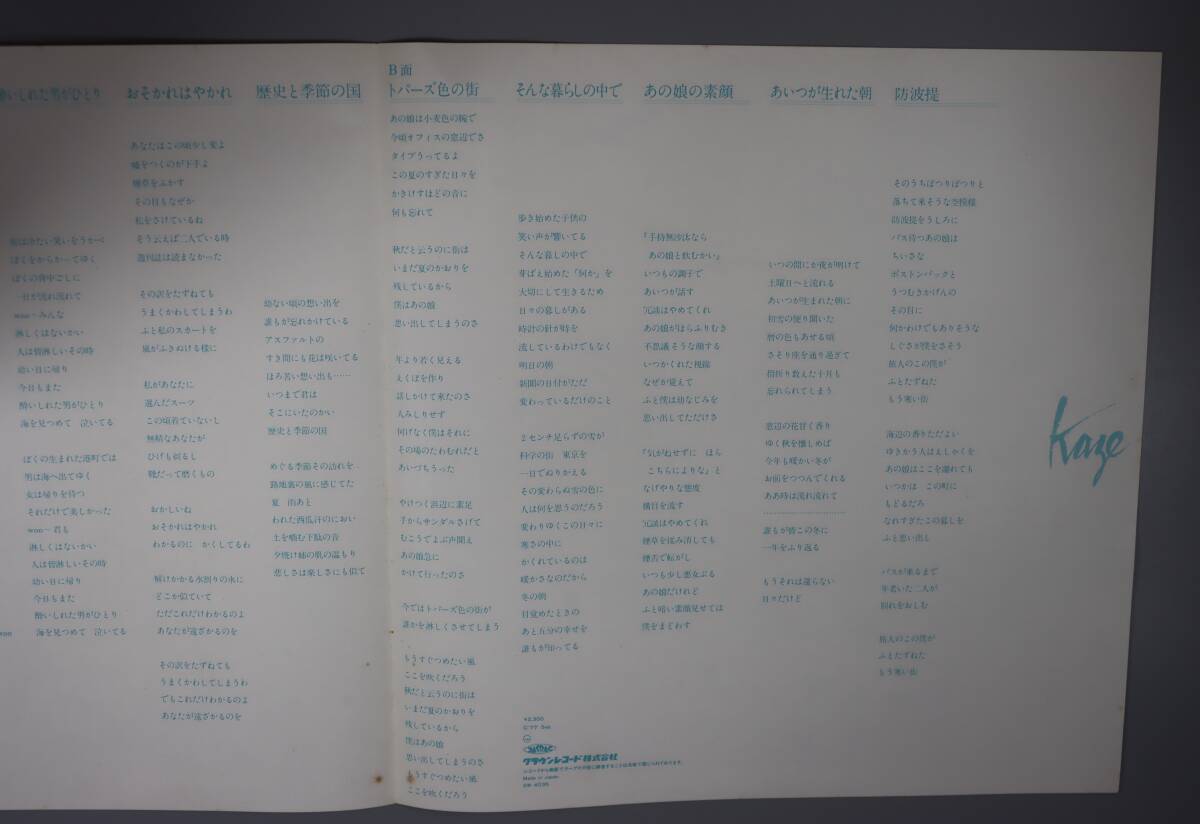 酔いしれた男がひとり
街は冷たい笑いをうかべ
ぼくをからかってゆく
ぼくの背中ごしに
一日が流れ流れて
woo〜みんな
淋しくはないかい
人は皆淋しいその時
幼い日に帰り
今日もまた
酔いしれた男がひとり
海を見つめて 泣いてる
ぼくの生まれた港町では
男は海へ出てゆく
女は帰りを待つ
それだけで美しかった
woo〜君も
淋しくはないかい
人は皆淋しいその時
幼い日に帰り
今日もまた
酔いしれた男がひとり
woo 海を見つめて 泣いてる
おそかれはやかれ
あなたはこの頃少し変よ
嘘をつくのが下手よ
煙草をふかす
その目もなぜか
私をさけているね
そう云えば二人でいる時
週刊誌は読まなかった
その訳をたずねても
うまくかわしてしまうわ
ふと私のスカートを
風がふきぬける様に
私があなたに
選んだスーツ
この頃着ていないし
無精なあなたが
ひげも剃るし
靴だって磨くもの
おかしいね
おそかれはやかれ
わかるのに かくしてるわ
溶けかかる水割りの氷に
どこか似ていて
ただこれだけわかるのよ
あなたが遠ざかるのを
その訳をたずねても
うまくかわしてしまうわ
でもこれだけわかるのよ
あなたが遠ざかるのを
歴史と季節の国
幼ない頃の想い出を
誰もが忘れかけている
アスファルトの
すき間にも花は咲いてる
ほろ苦い想い出も……
いつまで君は
そこにいたのかい
歴史と季節の国
めぐる季節その訪れを
路地裏の風に感じてた
夏 雨あと
われた西瓜汗のにおい
土を噛む下駄の音
夕焼け姉の肌の温もり
悲しさは楽しさにも似て
B面
トパーズ色の街
あの娘は小麦色の腕で
今頃オフィスの窓辺でさ
タイプうってるよ
この夏のすぎた日々を
かきけすほどの音に
何も忘れて
秋だと云うのに街は
いまだ夏のかおりを
残しているから
僕はあの娘
思い出してしまうのさ
年より若く見える
えくぼを作り
話しかけて来たのさ
人みしりせず
何げなく僕はそれに
その場のたわむれだと
あいづちうった
やけつく浜辺に素足
手からサンダルさげて
むこうでよぶ声聞え
あの娘急に
かけて行ったのさ
今ではトパーズ色の街が
誰かを淋しくさせてしまう
もうすぐつめたい風
ここを吹くだろう
秋だと云うのに街は
いまだ夏のかおりを
残しているから
僕はあの娘
思い出してしまうのさ
もうすぐつめたい風
ここを吹くだろう
そんな暮らしの中で
歩き始めた子供の
笑い声が響いてる
そんな暮しの中で
芽ばえ始めた「何か」を
大切にして生きるため
日々の暮しがある
時計の針が時を
流しているわけでもなく
明日の朝
新聞の日付がただ
変わっているだけのこと
2センチ足らずの雪が
科学の街 東京を
一日でぬりかえる
その変わらぬ雪の色に
人は何を思うのだろう
変わりゆくこの日々に
寒さの中に
かくれているのは
暖かさなのだから
冬の朝
目覚めたときの
あと五分の幸せを
誰もが知ってる
¥2,300
Ⓒ'77 Jan
クラウンレコード株式会社
Made in Japan
あの娘の素顔
『手持無沙汰なら
あの娘と飲むかい』
いつもの調子で
あいつが話す
冗談はやめてくれ
あの娘がほらふりむき
不思議そうな顔する
いつかくれた視線
なぜか覚えて
ふと僕は幼なじみを
思い出してただけさ
『気がねせずに ほら
こちらによりな』と
なげやりな態度
横目を流す
冗談はやめてくれ
煙草を揉み消しても
煙舌で転がし
いつも少し悪女ぶる
あの娘だけれど
ふと暗い素顔見せては
僕をまどわす
あいつが生れた朝
いつの間にか夜が明けて
土曜日へと流れる
あいつが生まれた朝に
初雪の便り聞いた
暦の色もあせる頃
さそり座を通り過ぎて
指折り数えた十月も
忘れられてしまう
窓辺の花甘く香り
ゆく秋を懐しめば
今年も暖かい冬が
お前をつつんでくれる
ああ時は流れ流れて
……………………
誰もが皆この冬に
一年をふり返る
もうそれは還らない
日々だけど
防波提
そのうちぽつりぽつりと
落ちて来そうな空模様
防波提をうしろに
バス待つあの娘は
ちいさな
ボストンバックと
うつむきかげんの
その目に
何かわけでもありそうな
しぐさが僕をさそう
旅人のこの僕が
ふとたずねた
もう寒い街
海辺の香りただよい
ゆきかう人はえしゃくを
あの娘はここを離れても
いつかは この町に
もどるだろ
なれすぎたこの暮しを
ふと思い出し
バスが来るまで
年老いた二人が
別れをおしむ
旅人のこの僕が
ふとたずねた
もう寒い街
Kaze